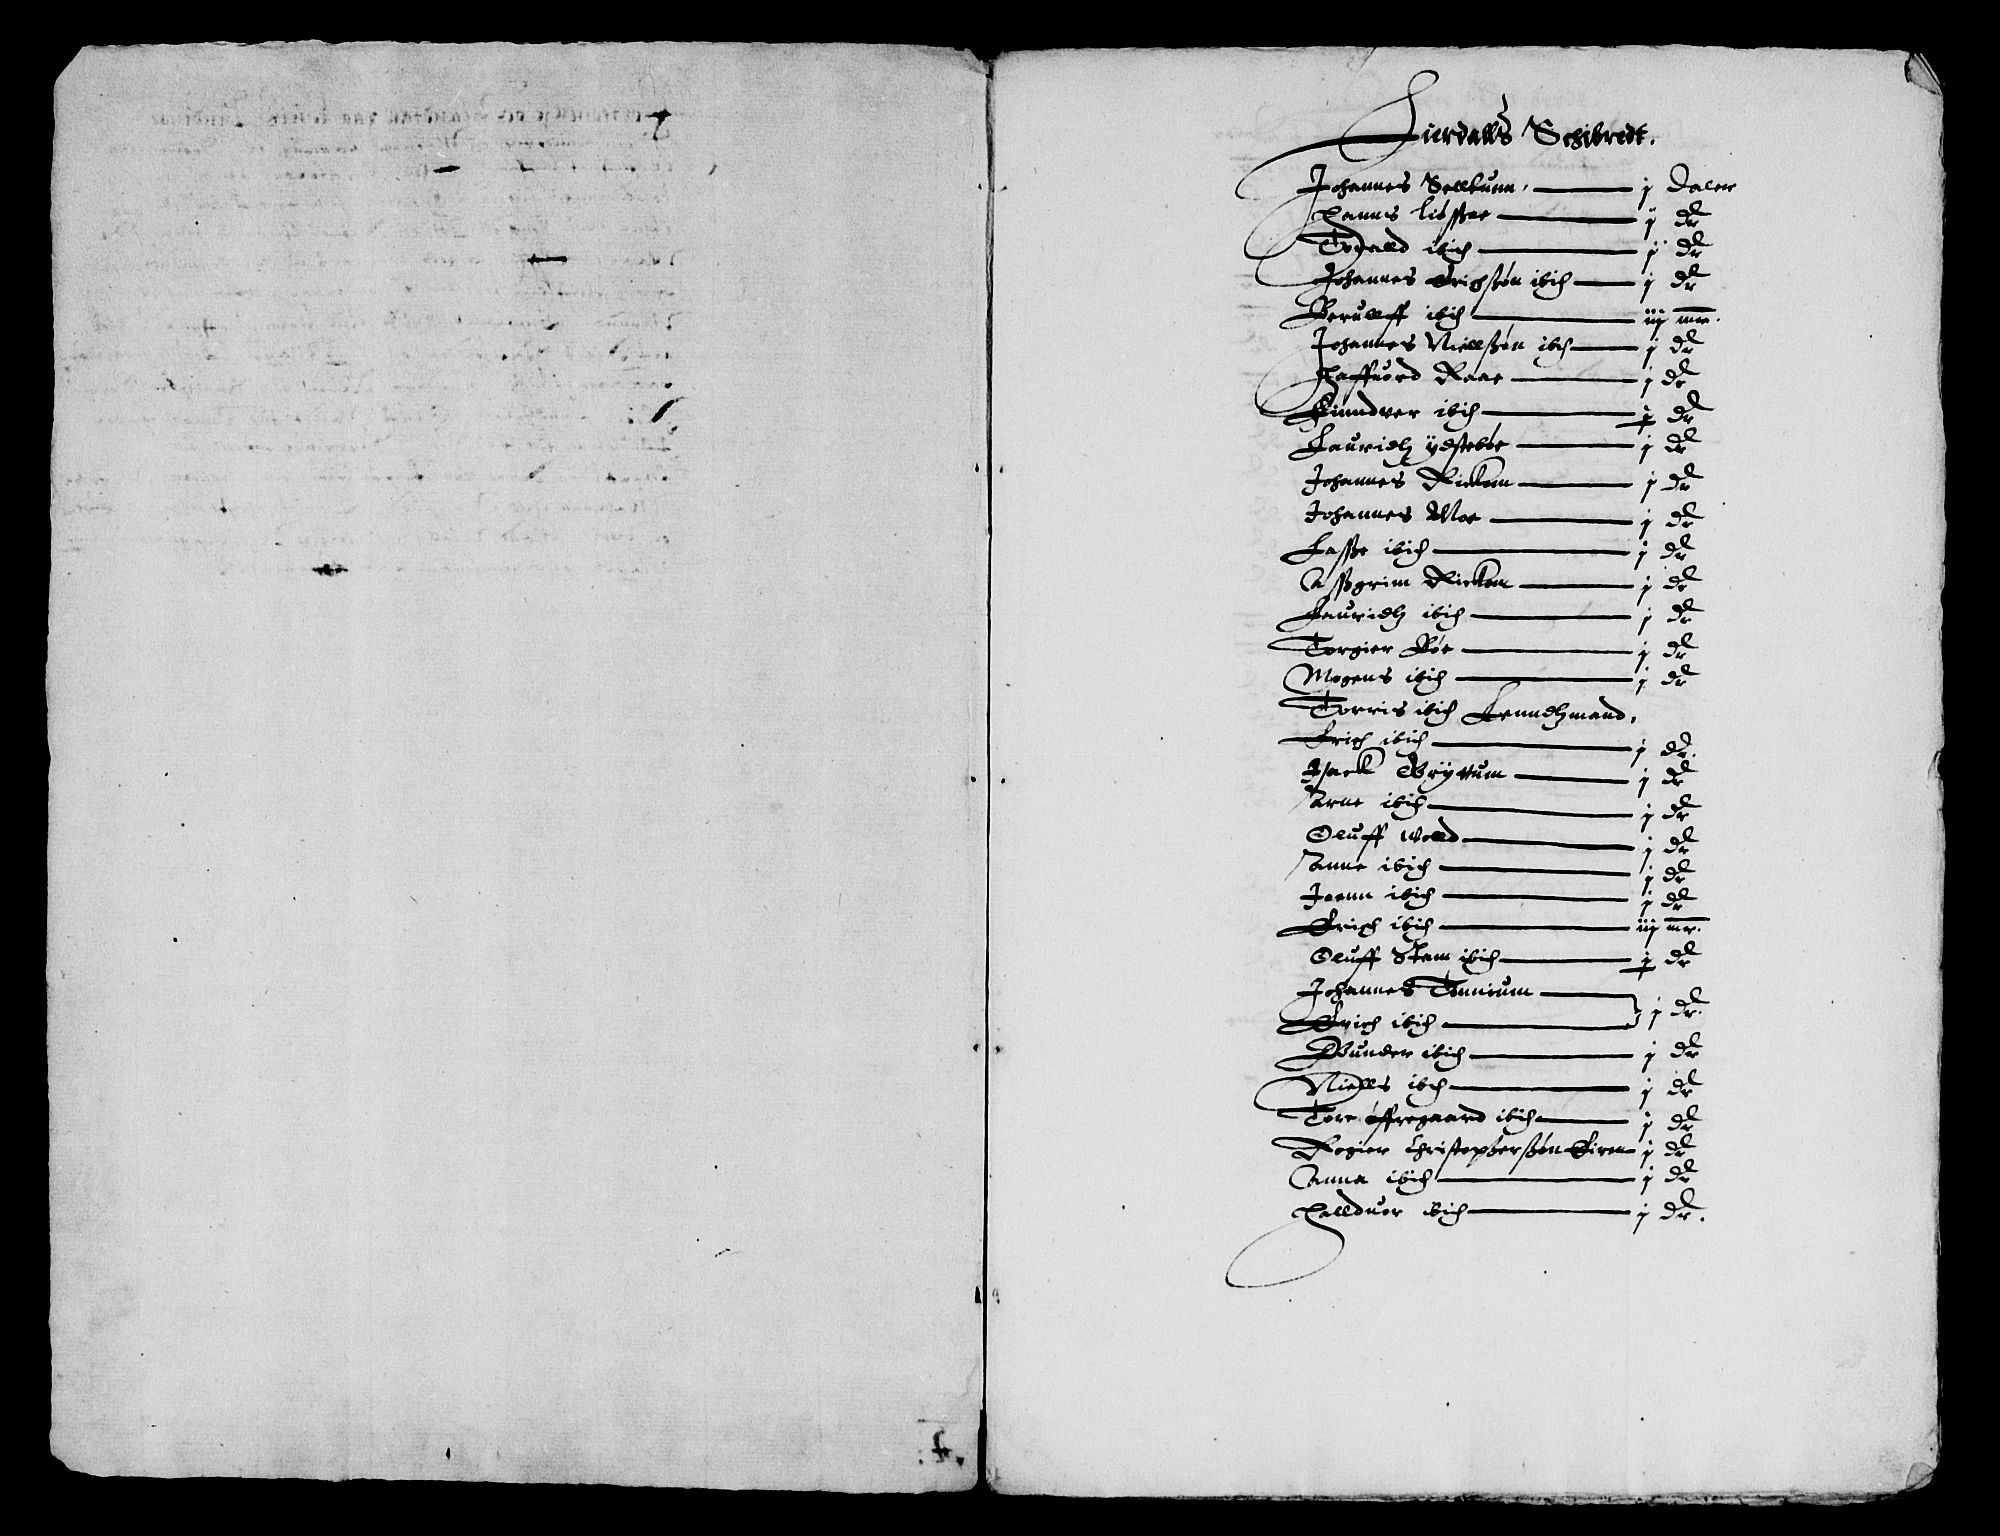 Lierdalls Schibredt.
Johannes Selltunn, j Daler
Hanns Liößne j dr
Toralld ibid j dr
Johannes Erichßøn ibid j dr
Berulff ibid iij mr.
Johannes Niellßøn ibid j dr
Haffuord Raae j dr
Gunduer ibid j dr
Lauridtz ÿdstebøe j dr
Johannes Rickem j dr
Johannes Moe j dr
Laße ibid j dr
Aßgrim Rickem j dr
Lauridtz ibid j dr
Torgier Bøe j dr
Mogens ibid j dr
Torris ibid Lenndtzmand,
Erich ibid j dr.
Isack Grÿttum j dr
Arne ibid j dr
Oluff Wolld j dr
Anne ibid j dr
Joenn ibid j dr
Erich ibid iij mr.
Oluff Stam ibid j dr
Johannes Tønnium
Erich ibid j dr.
Gunder ibid j dr
Niells ibid j dr
Tore Øffregaard ibid j dr
Rogier Christopherßøn j dr
Anna ibid j dr
Halduor ibid j dr.